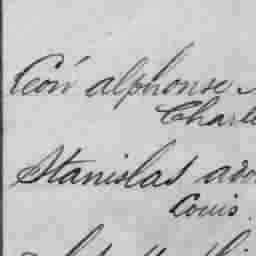 Léon alphonse
Charl
Stanislas ado
Louis